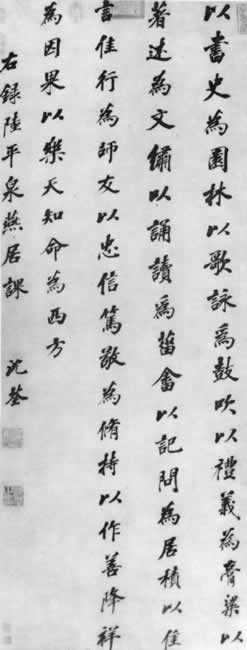 以書史為園林以歌詠為鼓吹以禮義為膏粱以
著述為文繡以誦讀為菑畬以記問為居積以佳
言佳行為師友以忠信篤敬為脩持以作善降祥
為因果以樂天知命為西方
右錄陸平泉燕居課 沈荃